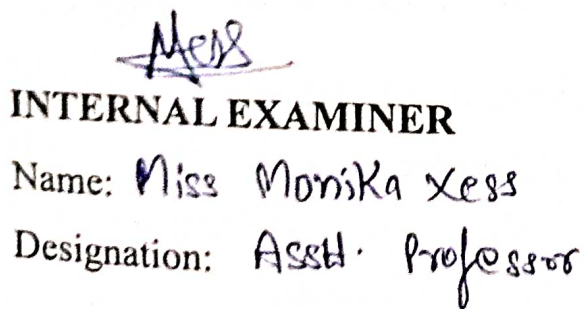 INTERNAL EXAMINER
Name: Miss Monika Xess
Designation: Asstt. Professor